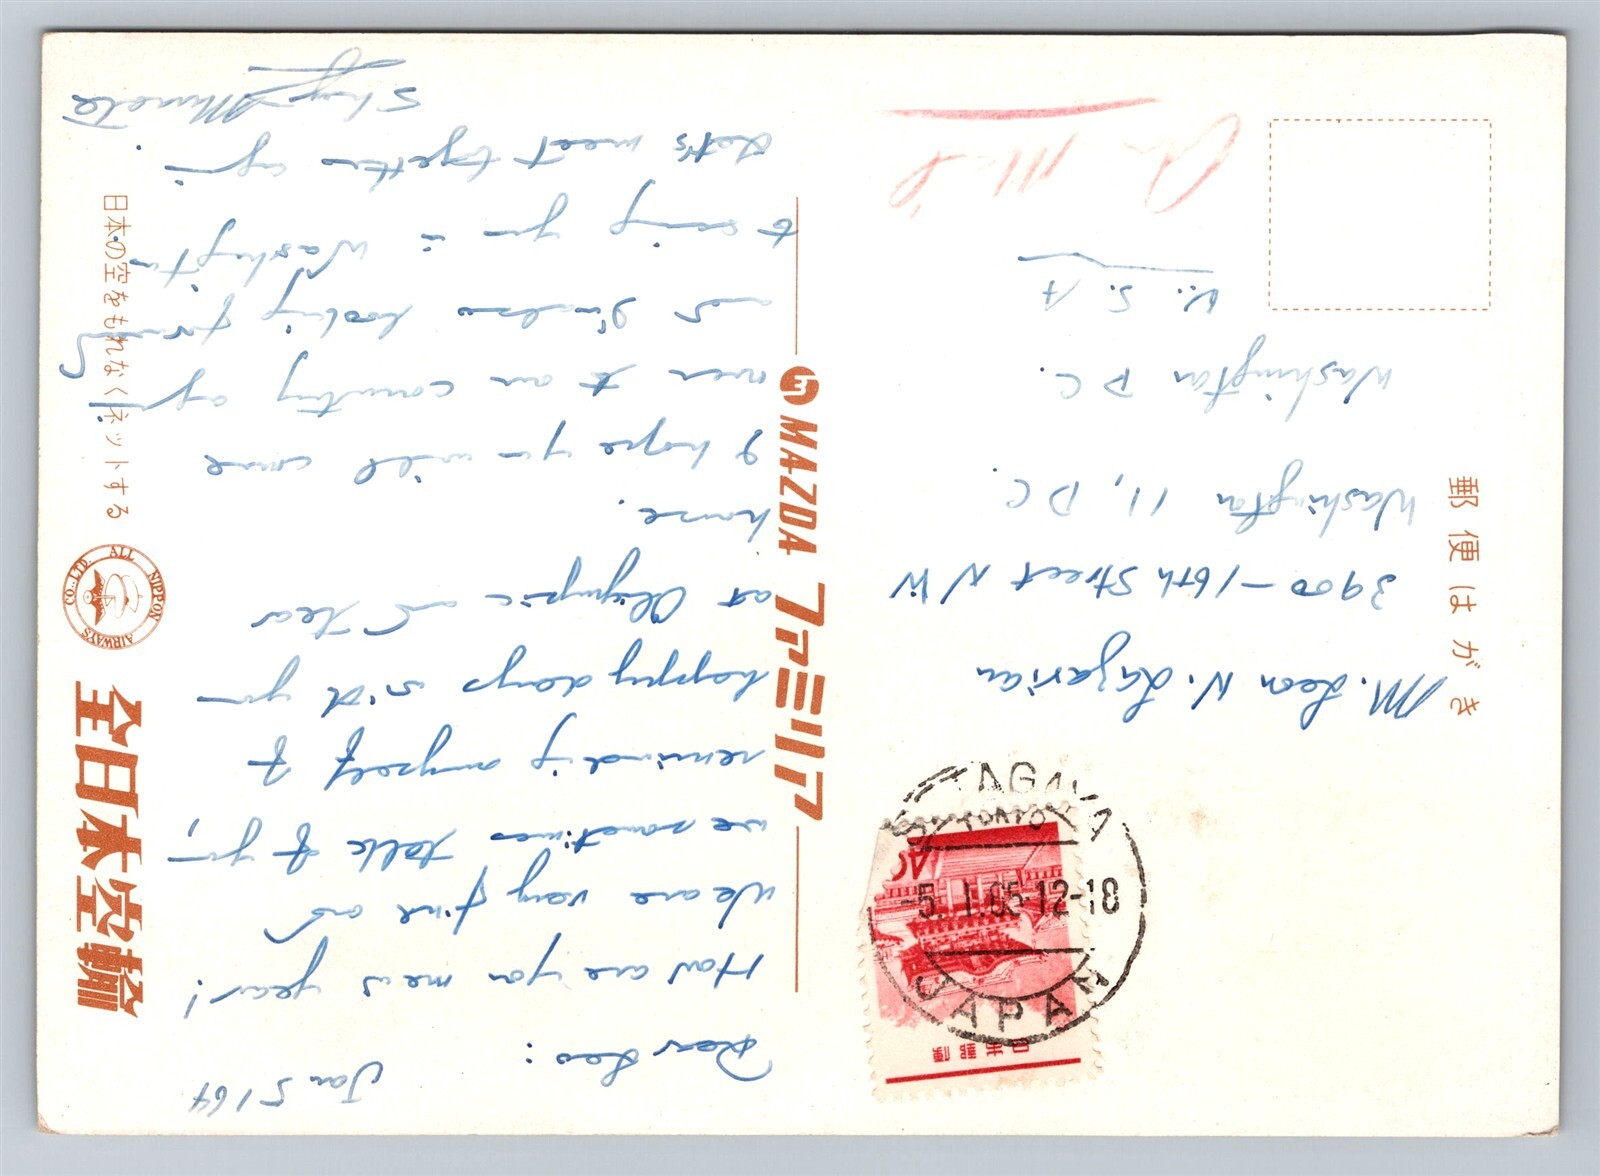 Jan 5 / 64
Dear Leo:
How are you new year!
We are very fine and
we sometimes talk of you,
reminding myself of
happy days with you
at Olympic and tea
house.
I hope you will come
over to our country again
and I'm also looking forward
to seeing you in Washington
Let's meet together again.
Shigo Muneta
M. Leon N. Lazarian
3900-16th Street NW
Washington 11, DC.
Washington DC.
U.S.A
Air Mail
郵便はがき
MAZDA ファミリア
日本の空をもれなくネットする
ALL NIPPON AIRWAYS CO., LTD.
全日本空輸
日本郵便
TOKYO
-5.1.65.12-18
JAPAN